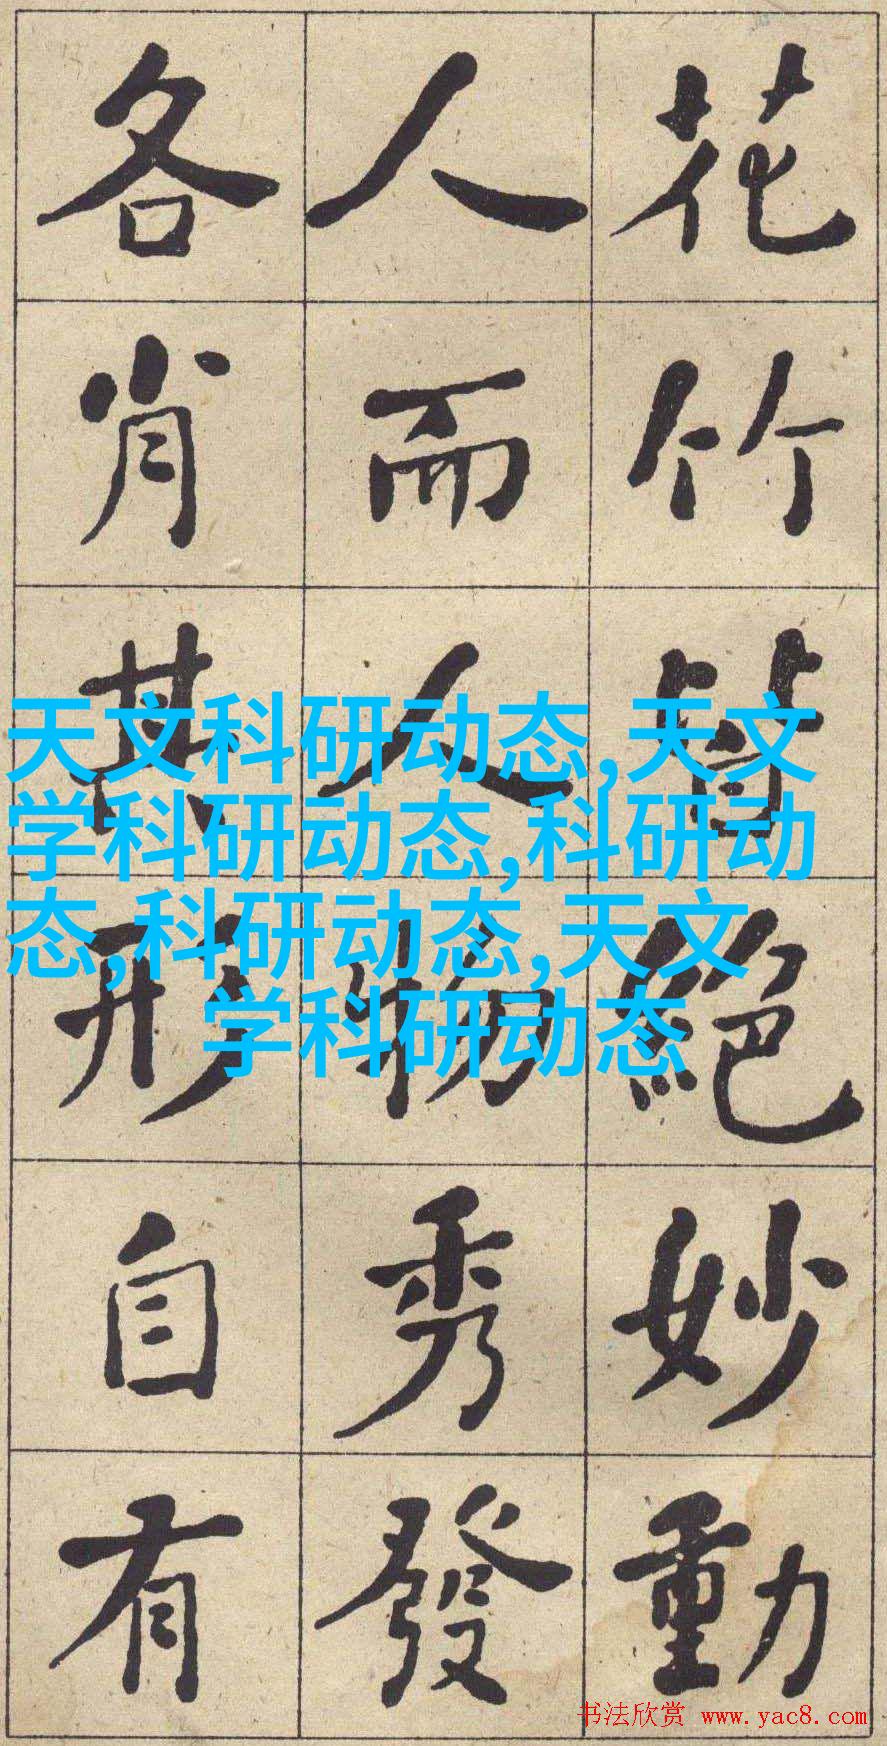 花竹皆絕妙動
人而人物秀發
各肖其形自有
天文科研动态,天文
学科研动态,科研动
态,科研动态,天文
学科研动态
书法欣赏 www.yac8.com